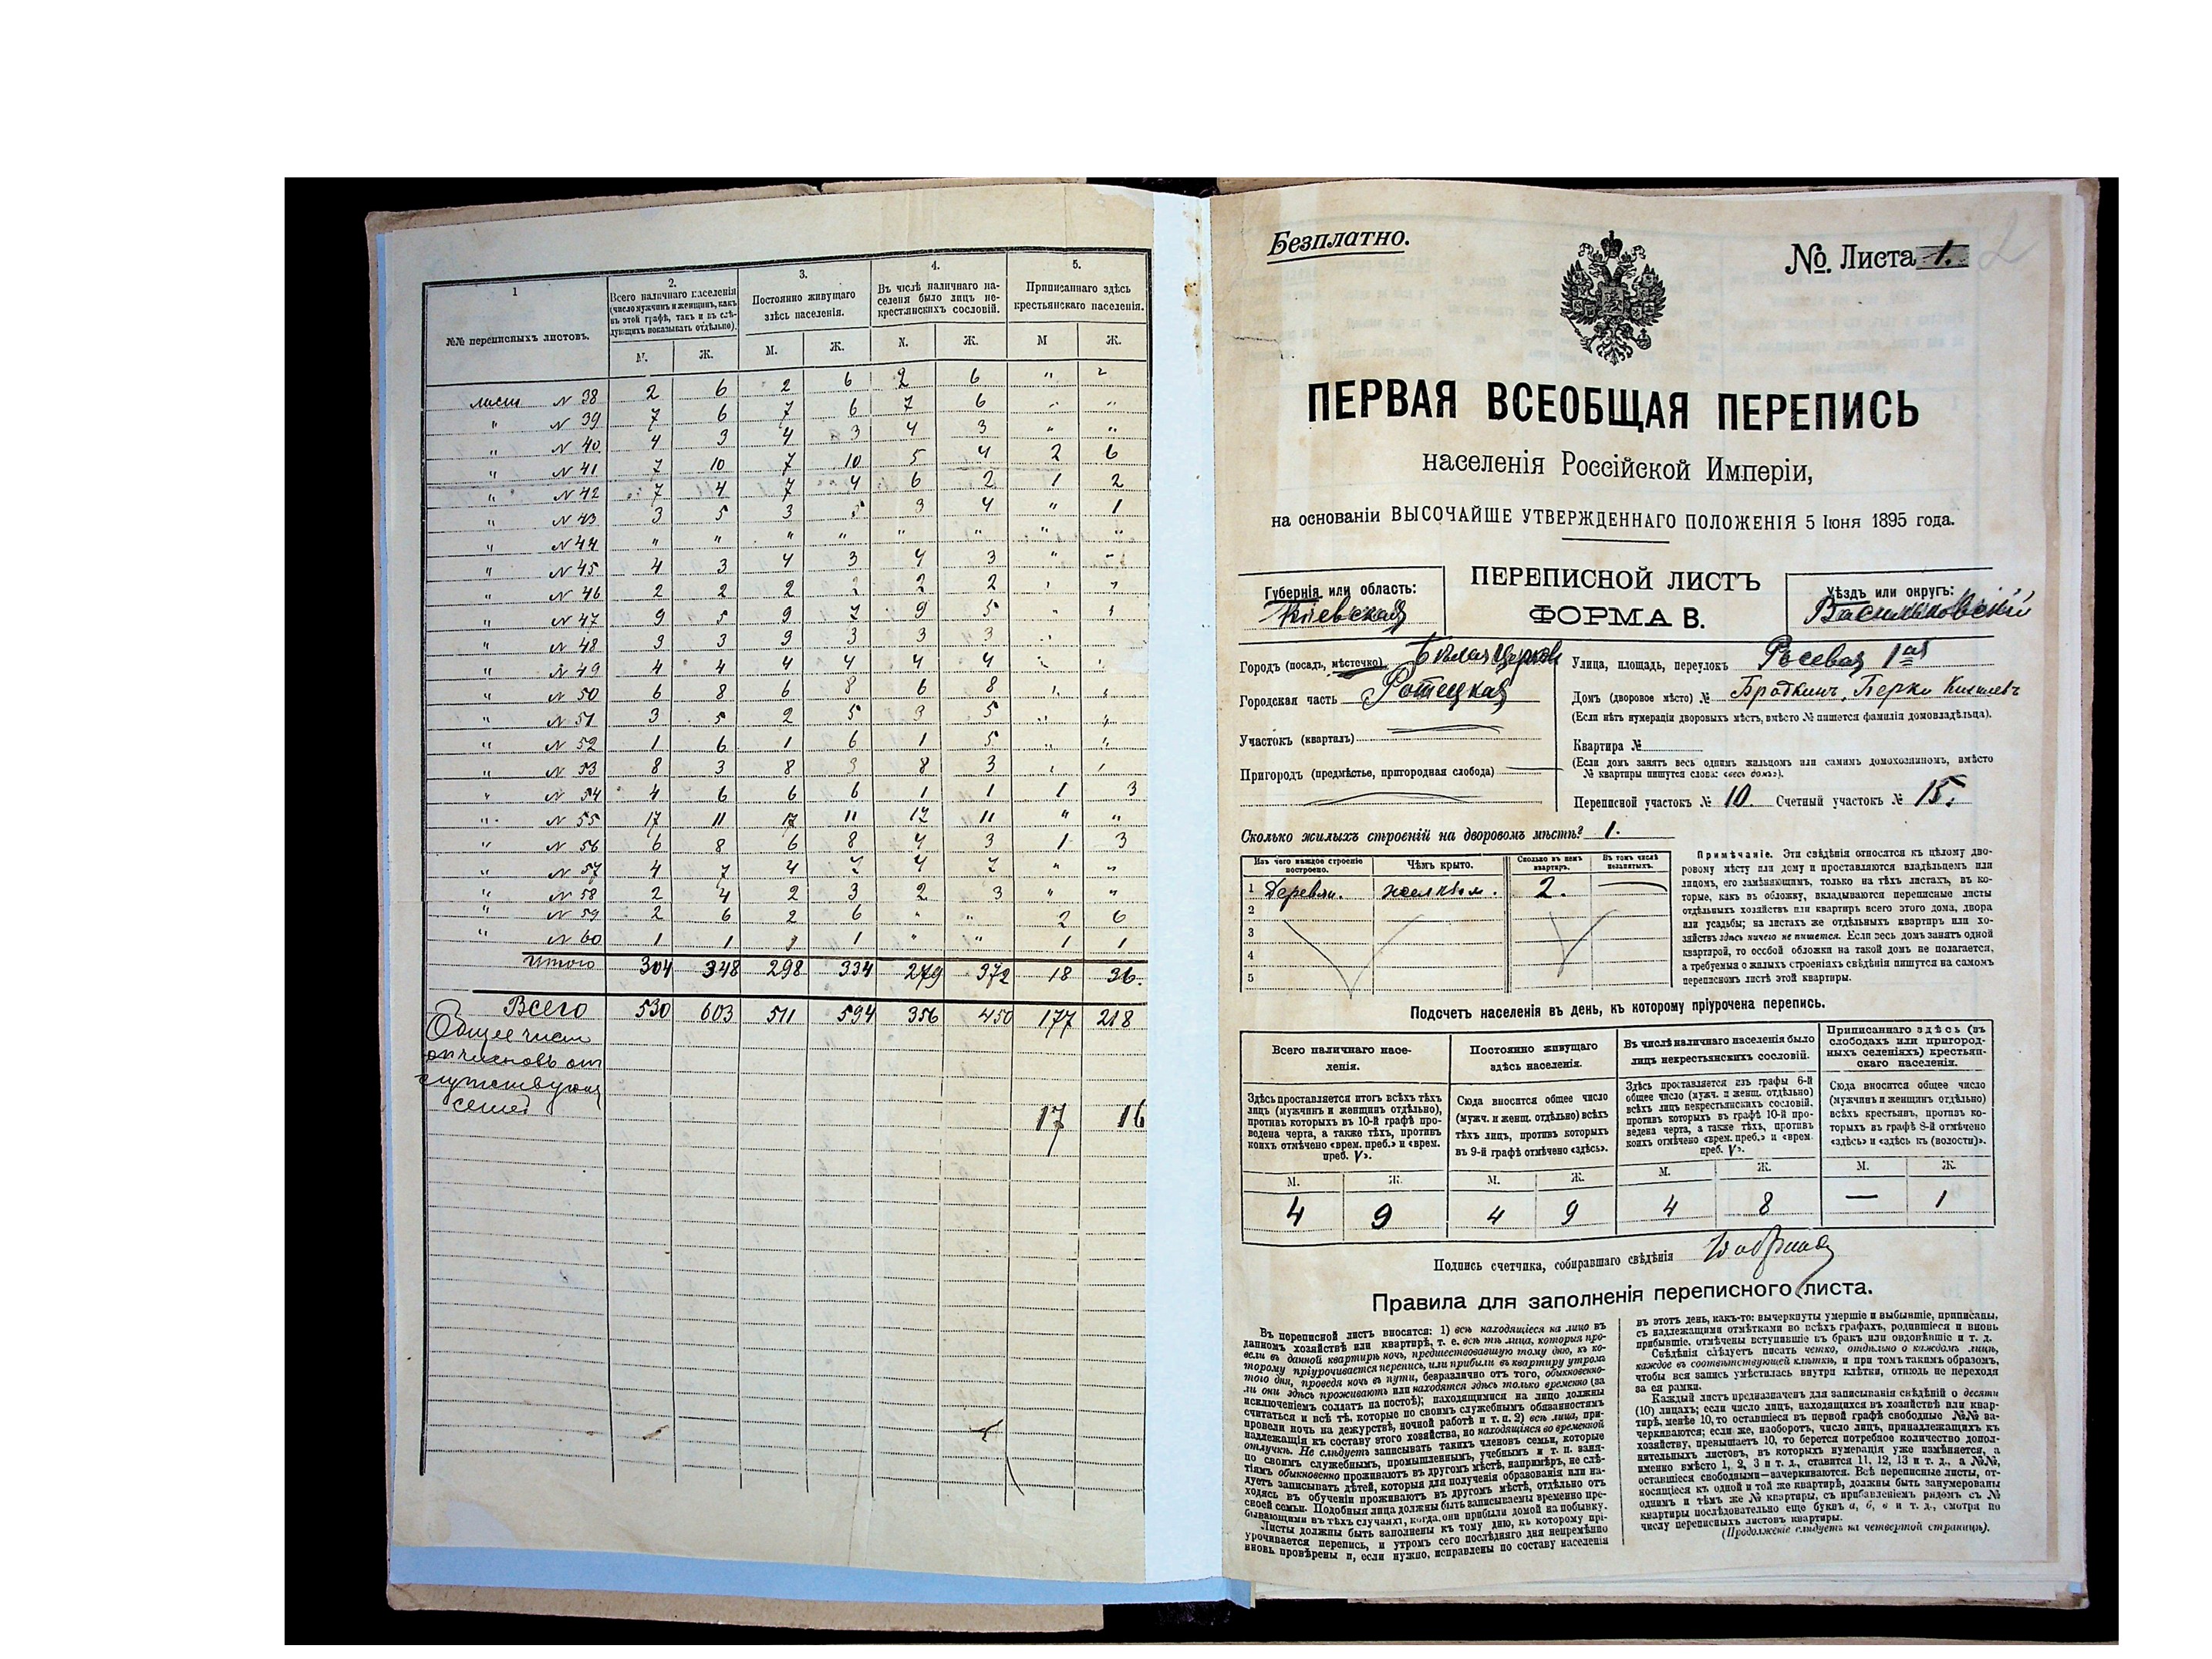 1
2.
3.
4.
5.
№№ переписныхъ листовъ.
Всего наличнаго населенія
(число мужчинъ и женщинъ, какъ
въ этой графѣ, такъ и въ слѣ-
дующихъ показывать отдѣльно).
Постоянно живущаго
здѣсь населенія.
Въ числѣ наличнаго на-
селенія было лицъ не-
крестьянскихъ сословій.
Приписаннаго здѣсь
крестьянскаго населенія.
М. Ж. М. Ж. М. Ж. М Ж.
листъ № 38 2 6 2 6 2 6 " "
" № 39 7 6 7 6 7 6 " "
" № 40 4 3 4 3 4 3 " "
" № 41 7 10 7 10 5 4 2 6
" № 42 7 4 7 4 6 2 1 2
" № 43 3 5 3 5 3 4 " 1
" № 44 " " " " " " " "
" № 45 4 3 4 3 4 3 " "
" № 46 2 2 2 2 2 2 " "
" № 47 9 5 9 7 9 5 " "
" № 48 3 3 9 3 3 3 " "
" № 49 4 4 4 4 4 4 " "
" № 50 6 8 6 8 6 8 " "
" № 51 3 5 2 5 3 5 " "
" № 52 1 6 1 6 1 5 " "
" № 53 8 3 8 3 8 3 " "
" № 54 4 6 6 6 1 1 1 3
" № 55 17 11 17 11 17 11 " "
" № 56 6 8 6 8 4 3 1 3
" № 57 4 7 4 7 4 7 " "
" № 58 2 4 2 3 2 3 " "
" № 59 2 6 2 6 " " 2 6
" № 60 1 1 1 1 " " 1 1
Итого 304 348 298 334 279 372 18 36.
Всего 530 603 511 594 356 450 177 218
Общее число
семей
17 16
Безплатно.
№. Листа 1.
2
ПЕРВАЯ ВСЕОБЩАЯ ПЕРЕПИСЬ
населенія Россійской Имперіи,
на основаніи ВЫСОЧАЙШЕ УТВЕРЖДЕННАГО ПОЛОЖЕНІЯ 5 Іюня 1895 года.
ПЕРЕПИСНОЙ ЛИСТЪ
ФОРМА В.
Губернія или область:
Кіевская
Уѣздъ или округъ:
Васильковскій
Городъ (посадъ, мѣстечко) Бѣлая Церковь
Городская часть Ротецкая
Участокъ (кварталъ)
Пригородъ (предмѣстье, пригородная слобода)
Улица, площадь, переулокъ Росевая 1ая
Домъ (дворовое мѣсто) № Бродкинъ, Берко
(Если нѣтъ нумераціи дворовыхъ мѣстъ, вмѣсто № пишется фамилія домовладѣльца).
Квартира №
(Если домъ занятъ весь однимъ жильцомъ или самимъ домохозяиномъ, вмѣсто
№ квартиры пишутся слова: «весь домъ»).
Переписной участокъ № 10. Счетный участокъ № 15.
Сколько жилыхъ строеній на дворовомъ мѣстѣ? 1.
Изъ чего каждое строеніе построено.
Чѣмъ крыто.
Сколько въ немъ квартиръ.
Въ томъ числѣ незанятыхъ.
1 Деревян. желѣзом. 2. —
2
3
4
5
Примѣчаніе. Эти свѣдѣнія относятся къ цѣлому дво-
ровому мѣсту или дому и проставляются владѣльцемъ или
лицомъ, его замѣняющимъ, только на тѣхъ листахъ, въ ко-
торые, какъ въ обложку, вкладываются переписные листы
отдѣльныхъ хозяйствъ или квартиръ всего этого дома, двора
или усадьбы; на листахъ же отдѣльныхъ квартиръ или хо-
зяйствъ здѣсь ничего не пишется. Если весь домъ занятъ одной
квартирой, то особой обложки на такой домъ не полагается,
а требуемыя о жилыхъ строеніяхъ свѣдѣнія пишутся на самомъ
переписномъ листѣ этой квартиры.
Подсчетъ населенія въ день, къ которому пріурочена перепись.
Всего наличнаго насе-
ленія.
Здѣсь проставляется итогъ всѣхъ тѣхъ
лицъ (мужчинъ и женщинъ отдѣльно),
противъ которыхъ въ 10-й графѣ про-
ведена черта, а также тѣхъ, противъ
коихъ отмѣчено «врем. преб.» и «врем.
преб. V».
Постоянно живущаго
здѣсь населенія.
Сюда вносится общее число
(мужч. и женщ. отдѣльно) всѣхъ
тѣхъ лицъ, противъ которыхъ
въ 9-й графѣ отмѣчено «здѣсь».
Въ числѣ наличнаго населенія было
лицъ некрестьянскихъ сословій.
Здѣсь проставляется изъ графы 6-й
общее число (мужч. и женщ. отдѣльно)
всѣхъ лицъ некрестьянскихъ сословій,
противъ которыхъ въ графѣ 10-й про-
ведена черта, а также тѣхъ, противъ
коихъ отмѣчено «врем. преб.» и «врем.
преб. V».
Приписаннаго здѣсь (въ
слободахъ или пригород-
ныхъ селеніяхъ) крестьян-
скаго населенія.
Сюда вносится общее число
(мужчинъ и женщинъ отдѣльно)
всѣхъ крестьянъ, противъ ко-
торыхъ въ графѣ 8-й отмѣчено
«здѣсь» и «здѣсь къ (волости)».
М. Ж. М. Ж. М. Ж. М. Ж.
4 9 4 9 4 8 — 1
Подпись счетчика, собиравшаго свѣдѣнія
Правила для заполненія переписного листа.
Въ переписной листъ вносятся: 1) всѣ находящіеся на лицо въ
данномъ хозяйствѣ или квартирѣ, т. е. всѣ тѣ лица, которыя про-
вели въ данной квартирѣ ночь, предшествовавшую тому дню, къ ко-
торому пріурочивается перепись, или прибыли въ квартиру утромъ
того дня, проведя ночь въ пути, безразлично отъ того, обыкновенно-
ли они здѣсь проживаютъ или находятся здѣсь только временно (за
исключеніемъ солдатъ на постоѣ); находящимися на лицо должны
считаться и всѣ тѣ, которые по своимъ служебнымъ обязанностямъ
провели ночь на дежурствѣ, ночной работѣ и т. п. 2) всѣ лица, при-
надлежащія къ составу этого хозяйства, но находящіяся во временной
отлучкѣ. Не слѣдуетъ записывать такихъ членовъ семьи, которые
по своимъ служебнымъ, промышленнымъ, учебнымъ и т. п. заня-
тіямъ обыкновенно проживаютъ въ другомъ мѣстѣ, напримѣръ, не слѣ-
дуетъ записывать дѣтей, которыя для полученія образованія или на-
ходясь въ обученіи проживаютъ въ другомъ мѣстѣ, отдѣльно отъ
своей семьи. Подобныя лица должны быть записываемы временно пре-
бывающими въ тѣхъ случаяхъ, когда они прибыли домой на побывку.
Листы должны быть заполнены къ тому дню, къ которому прі-
урочивается перепись, и утромъ сего послѣдняго дня непремѣнно
вновь провѣрены и, если нужно, исправлены по составу населенія
въ этотъ день, какъ-то: вычеркнуты умершіе и выбывшіе, приписаны,
съ надлежащими отмѣтками во всѣхъ графахъ, родившіеся и вновь
прибывшіе, отмѣчены вступившіе въ бракъ или овдовѣвшіе и т. д.
Свѣдѣнія слѣдуетъ писать четко, отдѣльно о каждомъ лицѣ,
каждое въ соотвѣтствующей клѣткѣ, и при томъ такимъ образомъ,
чтобы вся запись умѣстилась внутри клѣтки, отнюдь не переходя
за ея рамки.
Каждый листъ предназначенъ для записыванія свѣдѣній о десяти
(10) лицахъ; если число лицъ, находящихся въ хозяйствѣ или квар-
тирѣ, менѣе 10, то оставшіеся въ первой графѣ свободные №№ за-
черкиваются; если же, наоборотъ, число лицъ, принадлежащихъ къ
хозяйству, превышаетъ 10, то берется потребное количество допол-
нительныхъ листовъ, въ которыхъ нумерація уже измѣняется, а
именно вмѣсто 1, 2, 3 и т. д., ставится 11, 12, 13 и т. д., а №№,
оставшіеся свободными—зачеркиваются. Всѣ переписные листы, от-
носящіеся къ одной и той же квартирѣ, должны быть занумерованы
однимъ и тѣмъ же № квартиры, съ прибавленіемъ рядомъ съ №
квартиры послѣдовательно еще буквъ а, б, в и т. д., смотря по
числу переписныхъ листовъ квартиры.
(Продолженіе слѣдуетъ на четвертой страницѣ).